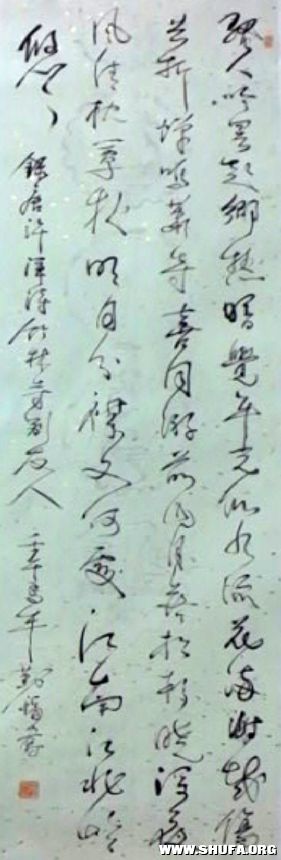 騷人吟罷起鄉愁暗覺年光似水流花滿謝城傷
共折蟬鳴蕭寺喜同游前山月落杉松晚深夜
風清枕簟秋明日分襟又何處江南江北路
悠悠
錄唐許渾詩竹林寺別友人 壬午馬年
WWW.SHUFA.ORG